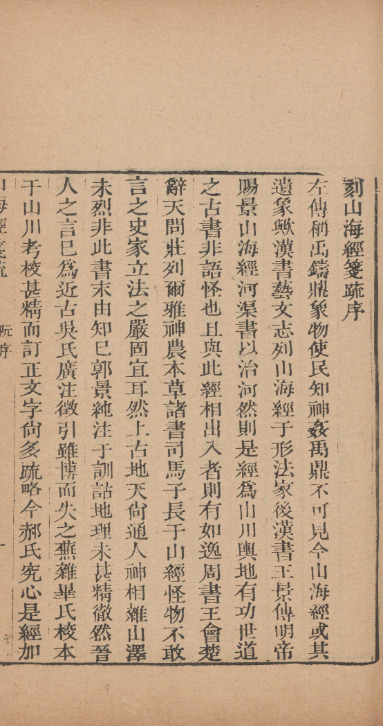 刻山海經箋疏序
左傳稱禹鑄鼎象物使民知神姦禹鼎不可見今山海經或其
遺象歟漢書藝文志列山海經于形法家後漢書王景傳明帝
賜景山海經河渠書以治河然則是經爲山川輿地有功世道
之古書非語怪也且與此經相出入者則有如逸周書王會楚
辭天問莊列爾雅神農本草諸書司馬子長于山經怪物不敢
言之史家立法之嚴固宜耳然上古地天尙通人神相雜山澤
未烈非此書末由知巳郭景純注于訓詁地理未甚精徹然晉
人之言巳爲近古吳氏廣注徵引雖博而失之蕪雜畢氏校本
于山川考校甚精而訂正文字尙多疏略今郝氏究心是經加
山海經箋疏 阮序 一